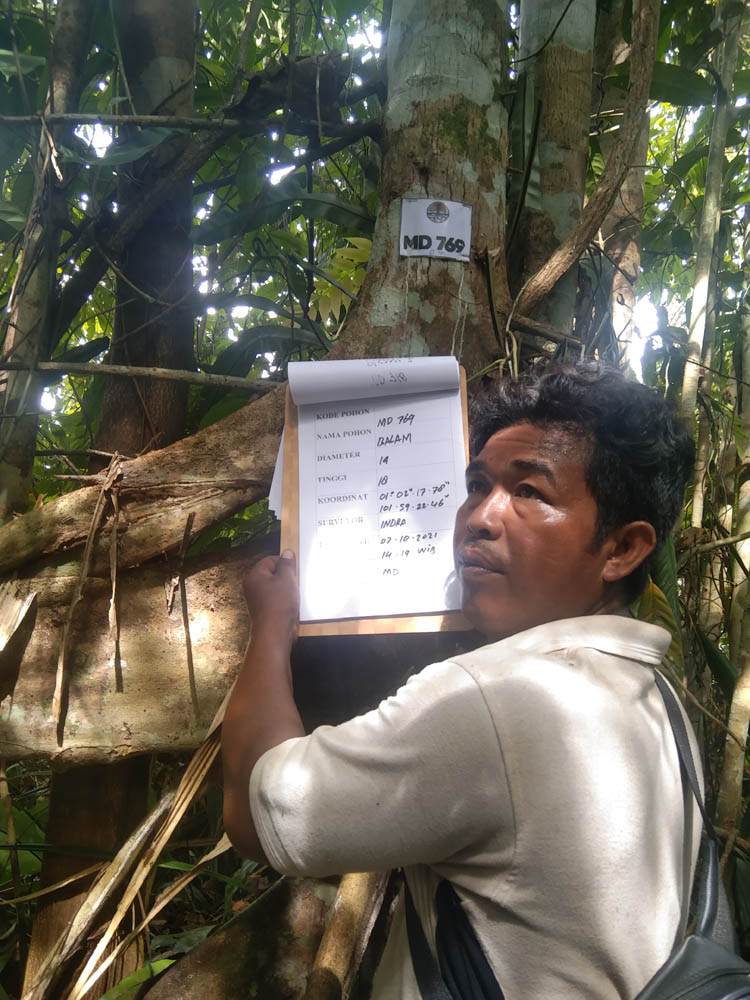 MD 769
KODE POHON MD 769
NAMA POHON BALAM
DIAMETER 19
TINGGI 18
KOORDINAT 01° 02" 17.78"
101.59.22.46"
SURVEYOR INDRA
07-10-2021
14-19 WIB
MD